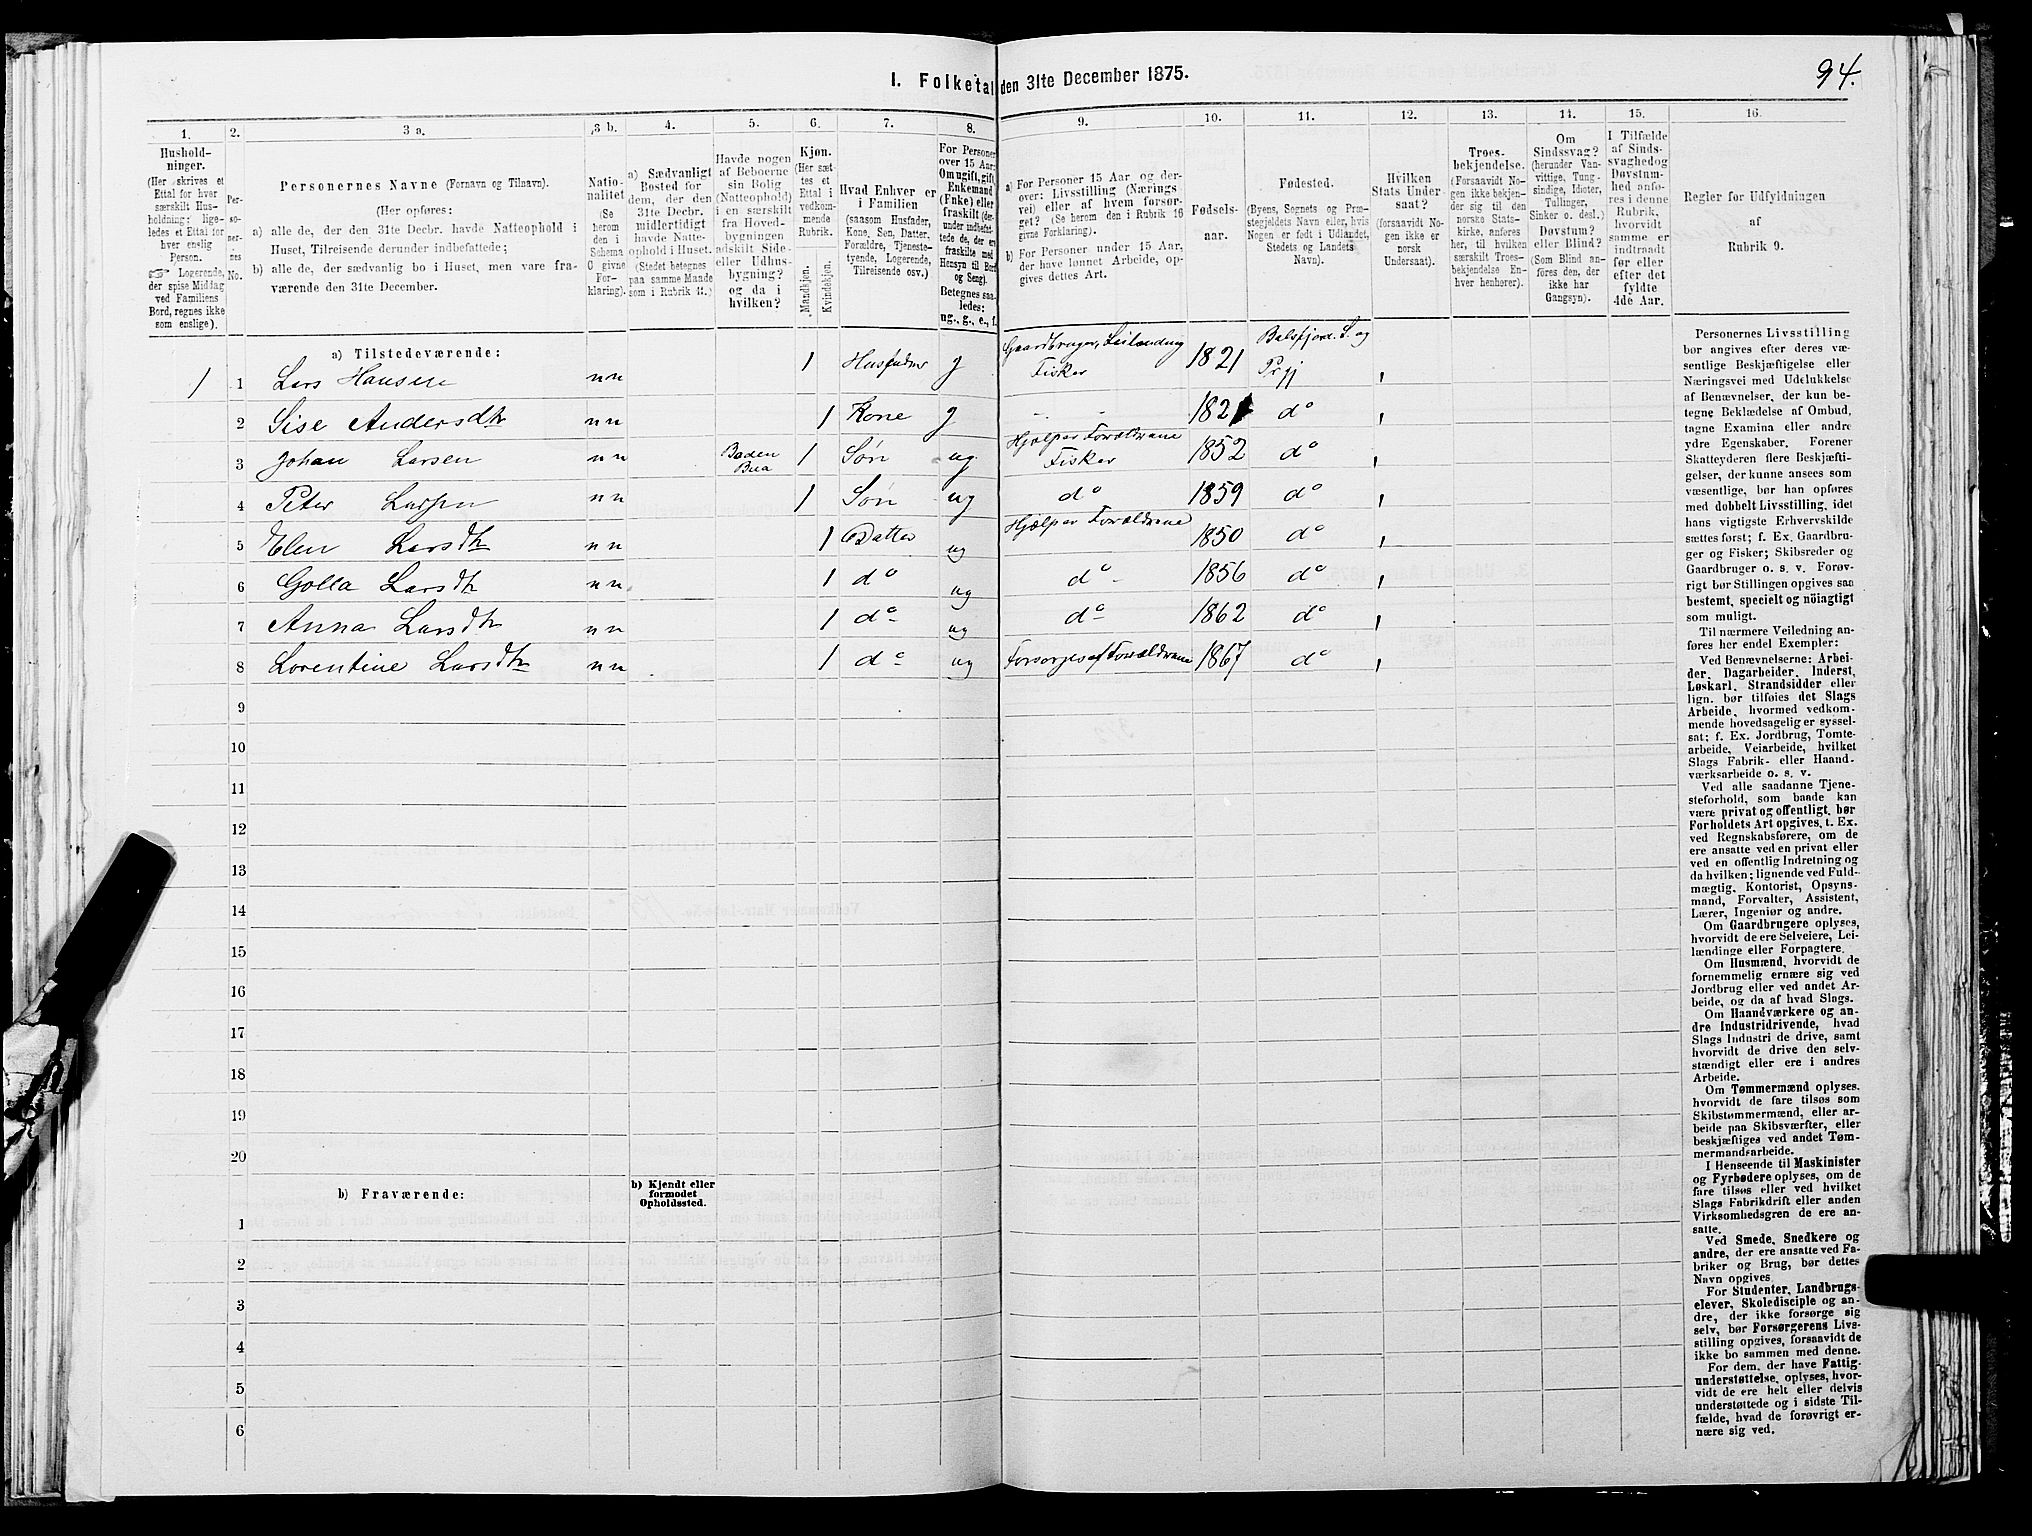 94.
I. Folketal den 31te December 1875.
1. 2. 3 a. 3 b. 4. 5. 6. 7. 8. 9. 10. 11. 12. 13. 14. 15. 16.
Hushold-
ninger.
(Her skrives et
Ettal for hver
særskilt Hus-
holdning; lige-
ledes et Ettal for
hver enslig
Person.
☞ Logerende,
der spise Middag
ved Familiens
Bord, regnes ikke
som enslige).
Per-
so-
ner-
nes
No.
Personernes Navne (Fornavn og Tilnavn).
(Her opføres:
a) alle de, der den 31te Decbr. havde Natteophold i
Huset, Tilreisende derunder indbefattede;
b) alle de, der sædvanlig bo i Huset, men vare fra-
værende den 31te December.
Natio-
nalitet
(Se
herom
den i
Schema
O givne
For-
klaring).
a) Sædvanligt
Bosted for
dem, der den
31te Decbr.
midlertidigt
havde Natte-
ophold i Huset.
(Stedet betegnes
paa samme Maade
som i Rubrik 11.)
Havde nogen
af Beboerne
sin Bolig
(Natteophold)
i en særskilt
fra Hoved-
bygningen
adskilt Side-
eller Udhus-
bygning?
og da i
hvilken?
Kjøn.
(Her sæt-
tes et
Ettal i
vedkom-
mende
Rubrik.
Mandkjøn.
Kvindekjøn.
Hvad Enhver er
i Familien
(saasom Husfader,
Kone, Søn, Datter,
Forældre, Tjeneste-
tyende, Logerende,
Tilreisende osv.)
For Personer
over 15 Aar:
Om ugift, gift,
Enkemand
(Enke) eller
fraskilt (der-
under indbefat-
tede de, der ere
fraskilte med
Hensyn til Bord
og Seng).
Betegnes saa-
ledes:
ug., g., e., f.
a) For Personer 15 Aar og der-
over: Livsstilling (Nærings
vei) eller af hvem forsør-
get? (Se herom den i Rubrik 16
givne Forklaring).
b) For Personer under 15 Aar,
der have lønnet Arbeide, op-
gives dettes Art.
Fødsels-
aar.
Fødested.
(Byens, Sognets og Præ-
stegjeldets Navn eller, hvis
Nogen er født i Udlandet,
Stedets og Landets
Navn).
Hvilken
Stats Under-
saat?
(forsaavidt No-
gen ikke er
norsk
Undersaat).
Troes-
bekjendelse.
(Forsaavidt No-
gen ikke bekjen-
der sig til den
norske Stats-
kirke, anføres
her, til hvilken
særskilt Troes-
bekjendelse En-
hver henhører).
Om
Sindssvag?
(herunder Van-
vittige, Tung-
sindige, Idioter,
Tullinger,
Sinker o. desl.)
Døvstum?
eller Blind?
(Som Blind an-
føres den, der
ikke har
Gangsyn).
I Tilfælde
af Sinds-
svaghed og
Døvstum-
hed anfø-
res i denne
Rubrik,
hvorvidt
samme er
indtraadt
før eller
efter det
fyldte
4de Aar.
Regler for Udfyldningen
af
Rubrik 9.
a) Tilstedeværende:
1 1 Lars Hansen n n 1 Husfader g Gaardbruger, Leilænding Fisker 1821 Balsfjord S. og Prgj
2 Sise Andersdtr n n 1 Kone g 1821 do
3 Johan Larsen n n Baden Bua 1 Søn ug. Hjælper Forældrene Fisker 1852 do
4 Peter Larsen n n 1 Søn ug do 1859 do
5 Elen Larsdtr n n 1 Datter ug Hjælper Forældrene 1850 do
6 Golla Larsdtr n n 1 do ug do 1856 do
7 Anna Larsdtr n n 1 do ug do 1862 do
8 Lorentine Larsdtr n n 1 do ug Forsørges af Forældrene 1867 do
9
10
11
12
13
14
15
16
17
18
19
20
b) Fraværende: b) Kjendt eller
formodet
Opholdssted.
1
2
3
4
5
6
Personernes Livsstilling
bør angives efter deres væ-
sentlige Beskjæftigelse eller
Næringsvei med Udelukkelse
af Benævnelser, der kun be-
tegne Beklædelse af Ombud,
tagne Examina eller andre
ydre Egenskaber. Forener
Skatteyderen flere Beskjæfti-
gelser, der kunne ansees som
væsentlige, bør han opføres
med dobbelt Livsstilling, idet
hans vigtigste Erhvervskilde
sættes først; f. Ex. Gaardbru-
ger og Fisker; Skibsreder og
Gaardbruger o. s. v. Forøv-
rigt bør Stillingen opgives saa
bestemt, specielt og nöiagtigt
som muligt.
Til nærmere Veiledning an-
føres her endel Exempler:
Ved Benævnelserne: Arbei-
der, Dagarbeider, Inderst,
Løskarl, Strandsidder eller
lign. bør tilføies det Slags
Arbeide, hvormed vedkom-
mende hovedsagelig er syssel-
sat; f. Ex. Jordbrug, Tomte-
arbeide, Veiarbeide, hvilket
Slags Fabrik- eller Haand-
værksarbeide o. s. v.
Ved alle saadanne Tjene-
steforhold, som baade kan
være privat og offentligt, bør
Forholdets Art opgives, t. Ex.
ved Regnskabsførere, om de
ere ansatte ved en privat eller
ved en offentlig Indretning og
da hvilken; lignende ved Fuld-
mægtig, Kontorist, Opsyns-
mand, Forvalter, Assistent,
Lærer, Ingeniør og andre.
Om Gaardbrugere oplyses,
hvorvidt de ere Selveiere, Lei-
lændinge eller Forpagtere.
Om Husmænd, hvorvidt de
fornemmelig ernære sig ved
Jordbrug eller ved andet Ar-
beide, og da af hvad Slags.
Om Haandværkere og an-
dre Industridrivende, hvad
Slags Industri de drive, samt
hvorvidt de drive den selv-
stændigt eller ere i andres
Arbeide.
Om Tømmermænd oplyses,
hvorvidt de fare tilsøs som
Skibstømmermænd, eller ar-
beide paa Skibsværfter, eller
beskjæftiges ved andet Tøm-
mermandsarbeide.
I Henseende til Maskinister
og Fyrbødere oplyses, om de
fare tilsøs eller ved hvilket
Slags Fabrikdrift eller anden
Virksomhedsgren de ere an-
satte.
Ved Smede, Snedkere og
andre, der ere ansatte ved Fa-
briker og Brug, bør dettes
Navn opgives.
For Studenter, Landbrugs-
elever, Skoledisciple og an-
dre, der ikke forsørge sig
selv, bør Forsørgerens Livs-
stilling opgives, forsaavidt de
ikke bo sammen med denne.
For dem, der have Fattig-
understøttelse, oplyses, hvor-
vidt de ere helt eller delvis
understøttede og i sidste Til-
fælde, hvad de forøvrigt er-
nære sig ved.